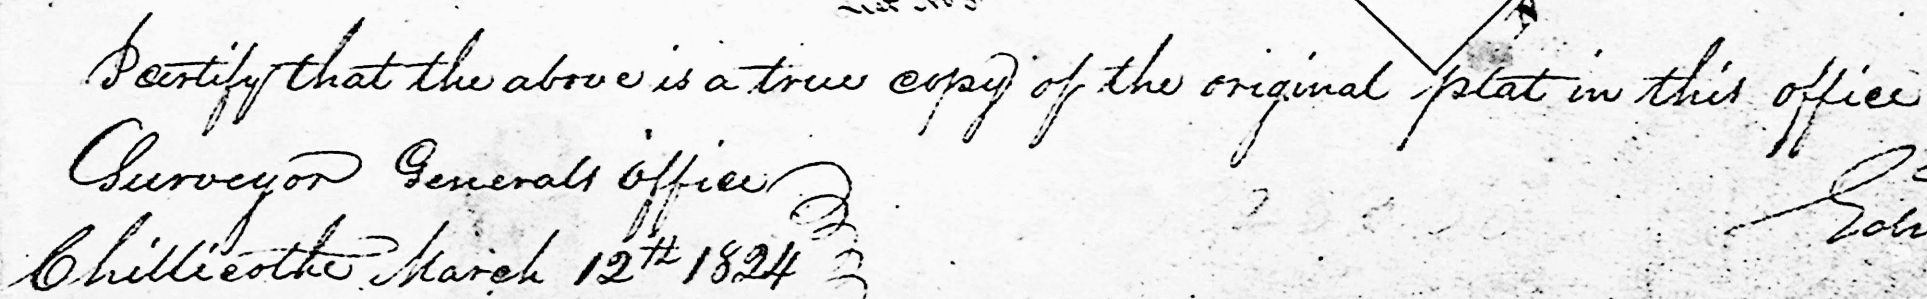 I certify that the above is a true copy of the original plat in this office
Surveyor Generals office
Chillicothe March 12th 1824